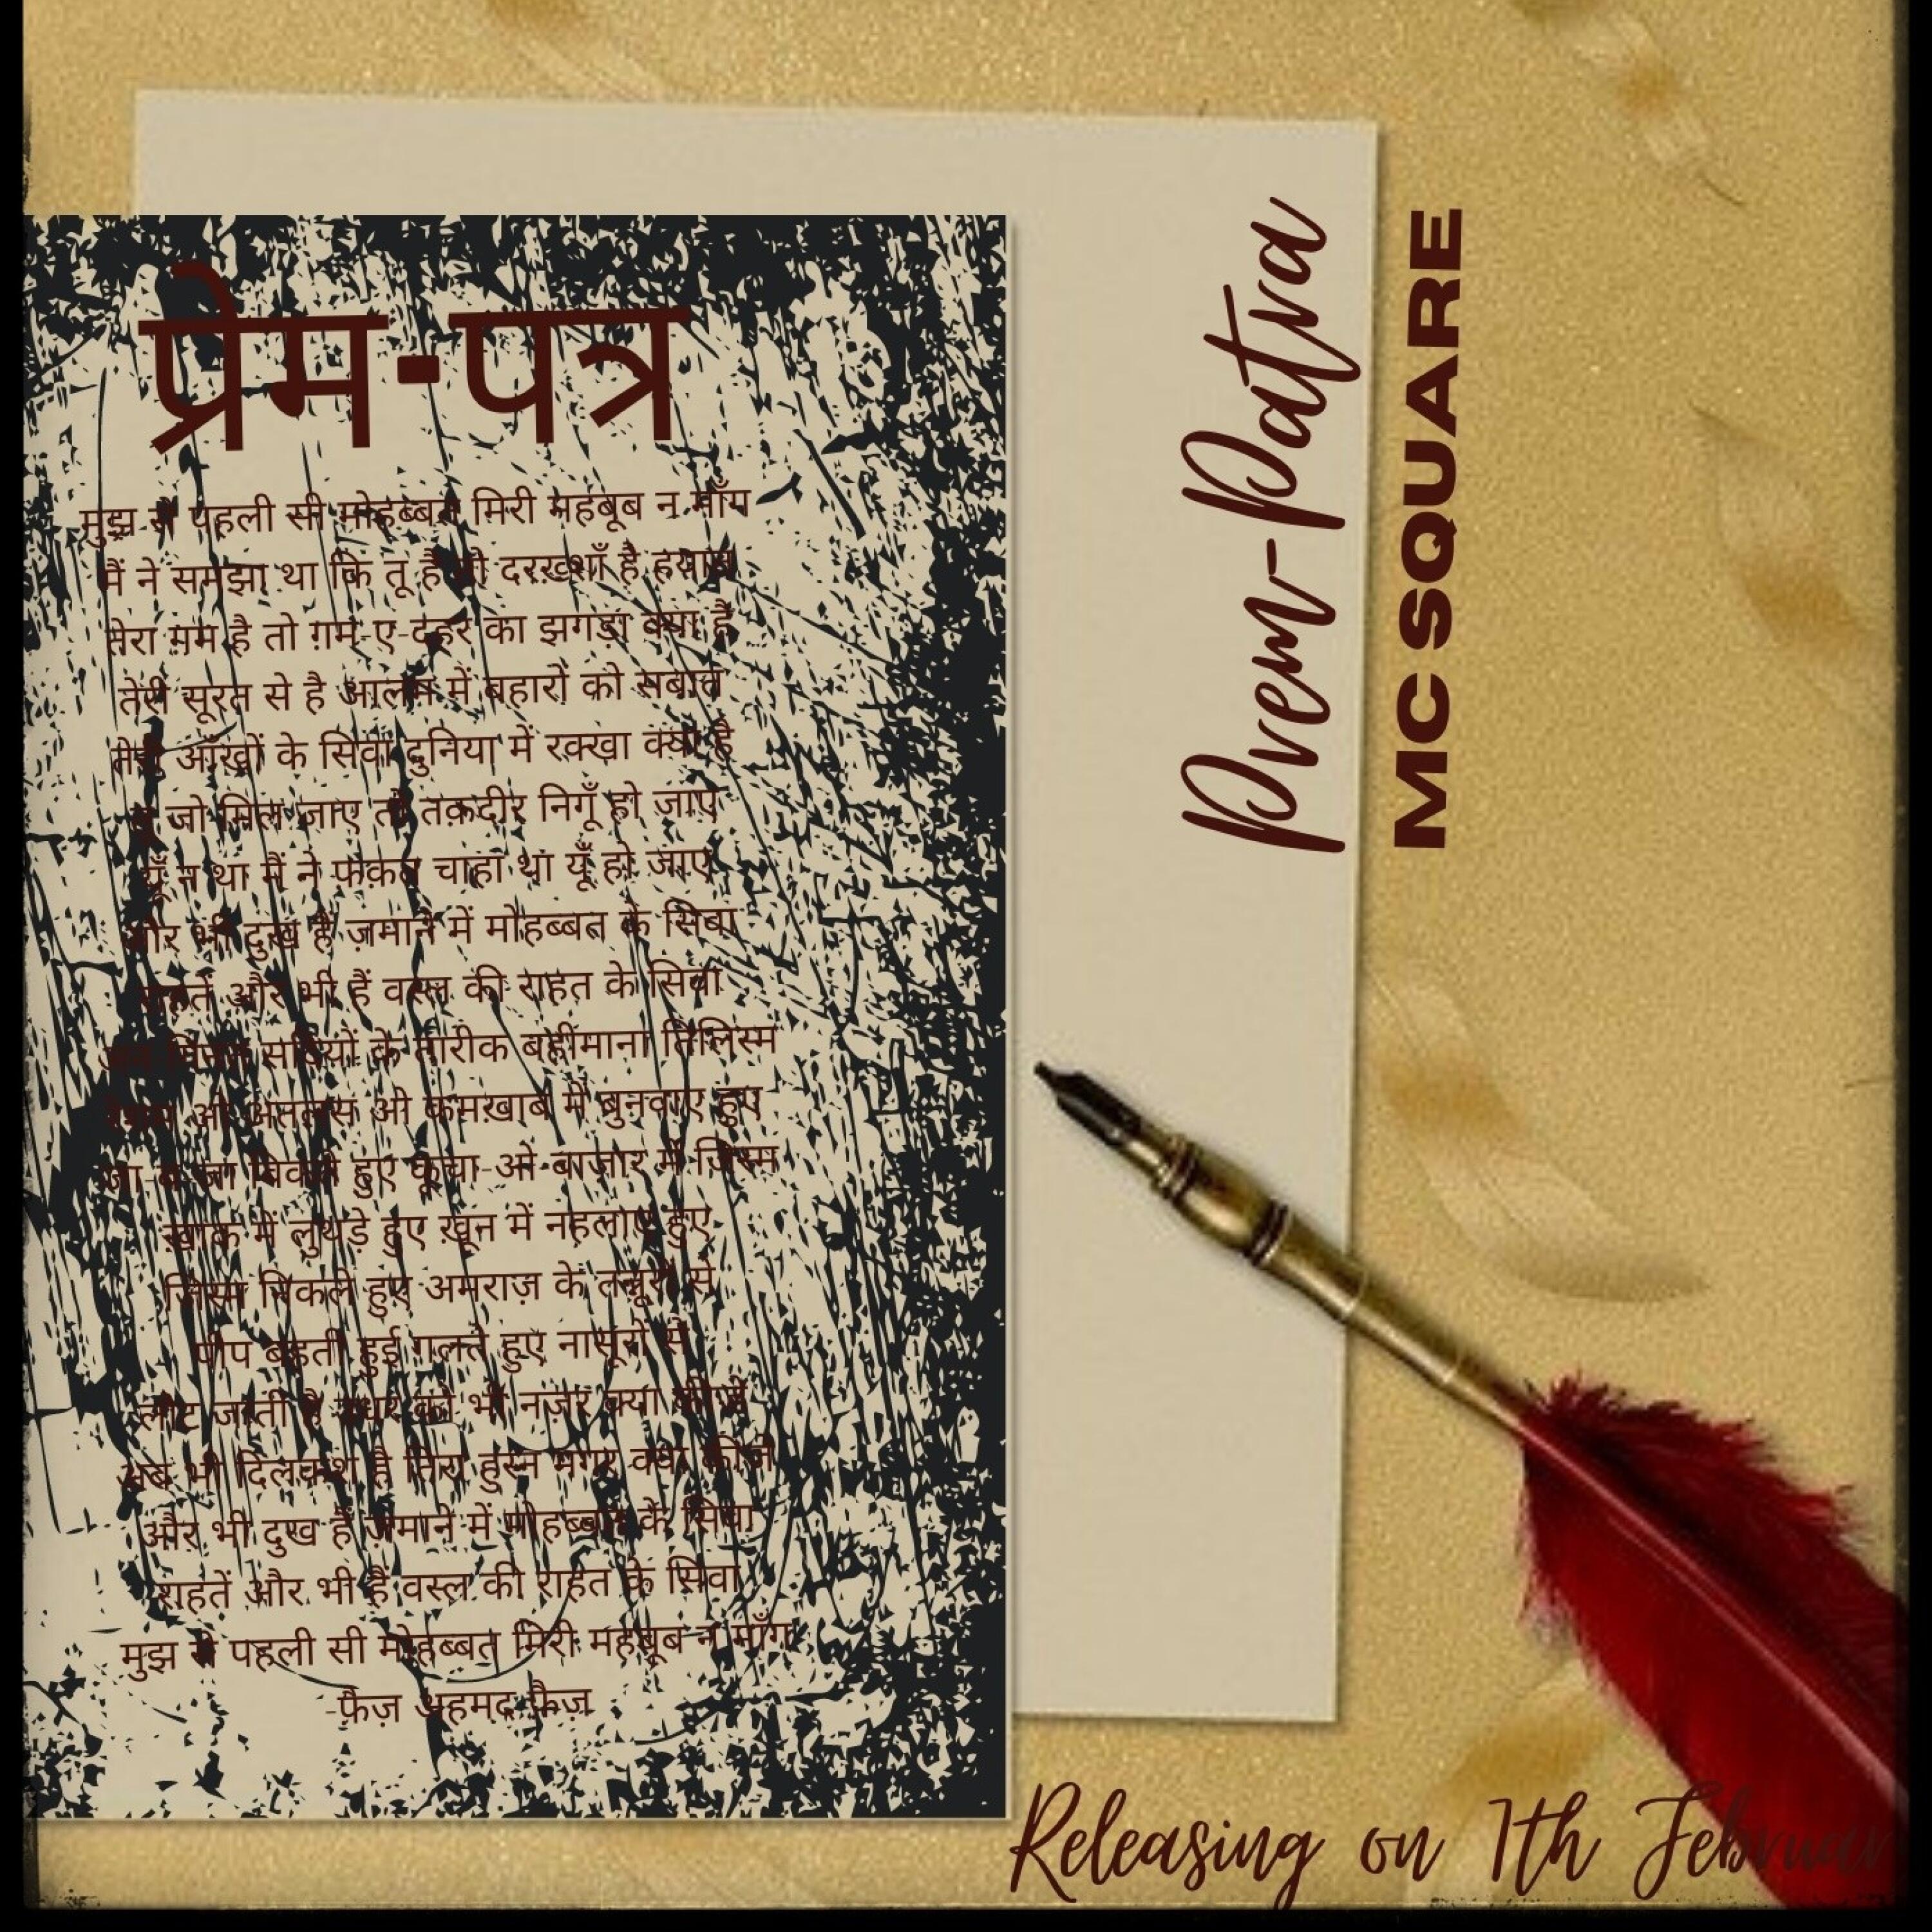 प्रेम-पत्र
मुझ से पहली सी मोहब्बत मिरी महबूब न माँग
मैं ने समझा था कि तू है तो दरख़्शाँ है हयात
तेरा ग़म है तो ग़म-ए-दहर का झगड़ा क्या है
तेरी सूरत से है आलम में बहारों को सबात
तेरी आँखों के सिवा दुनिया में रक्खा क्या है
तू जो मिल जाए तो तक़दीर निगूँ हो जाए
यूँ न था मैं ने फ़क़त चाहा था यूँ हो जाए
और भी दुख हैं ज़माने में मोहब्बत के सिवा
राहतें और भी हैं वस्ल की राहत के सिवा
सदियों के तारीक बहीमाना तिलिस्म
ओ अतलस ओ कमख़ाब में बुनवाए हुए
जा-ब-जा बिकते हुए कूचा-ओ-बाज़ार में जिस्म
ख़ाक में लुथड़े हुए ख़ून में नहलाए हुए
जिस्म निकले हुए अमराज़ के तन्नूरों से
पीप बहती हुई गलते हुए नासूरों से
लौट जाती है उधर को भी नज़र क्या कीजे
अब भी दिलकश है तिरा हुस्न मगर क्या कीजे
और भी दुख हैं ज़माने में मोहब्बत के सिवा
राहतें और भी हैं वस्ल की राहत के सिवा
मुझ से पहली सी मोहब्बत मिरी महबूब न माँग
-फ़ैज़ अहमद फ़ैज़
Prem-Patra
MC SQUARE
Releasing on 7th Februar